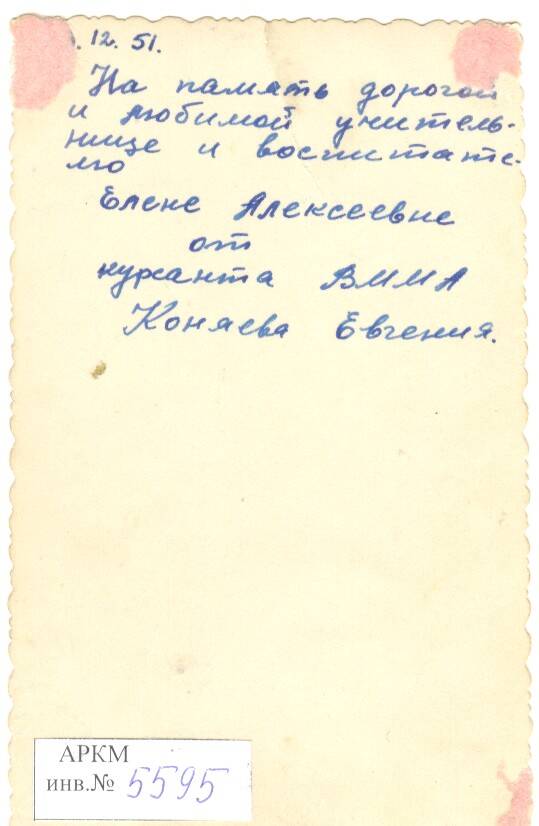 . 12. 51.
На память дорогой
и любимой учитель-
нице и воспитате-
лю
Елене Алексеевне
от
курсанта ВММА
Коняева Евгения.
АРКМ
инв.№ 5595